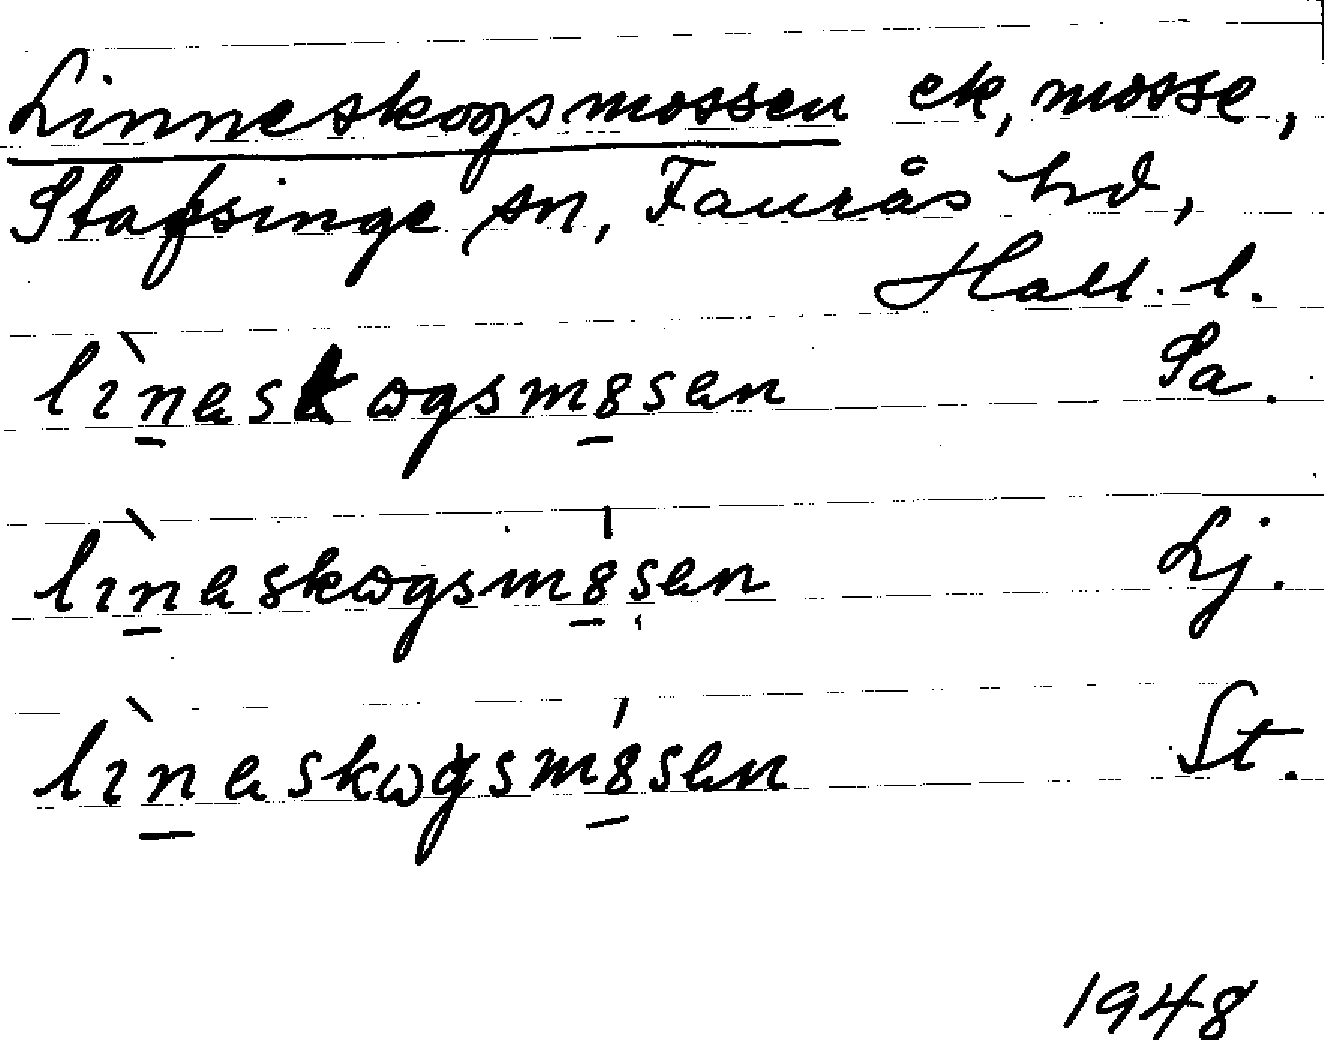 Linneskogsmossen ek, mosse,
Stafsinge sn, Faurås hd,
Hall. l.
lìnaskogsm8san Sa.
lìnaskogsm8san Lj.
lìnaskogsm8san St.
1948